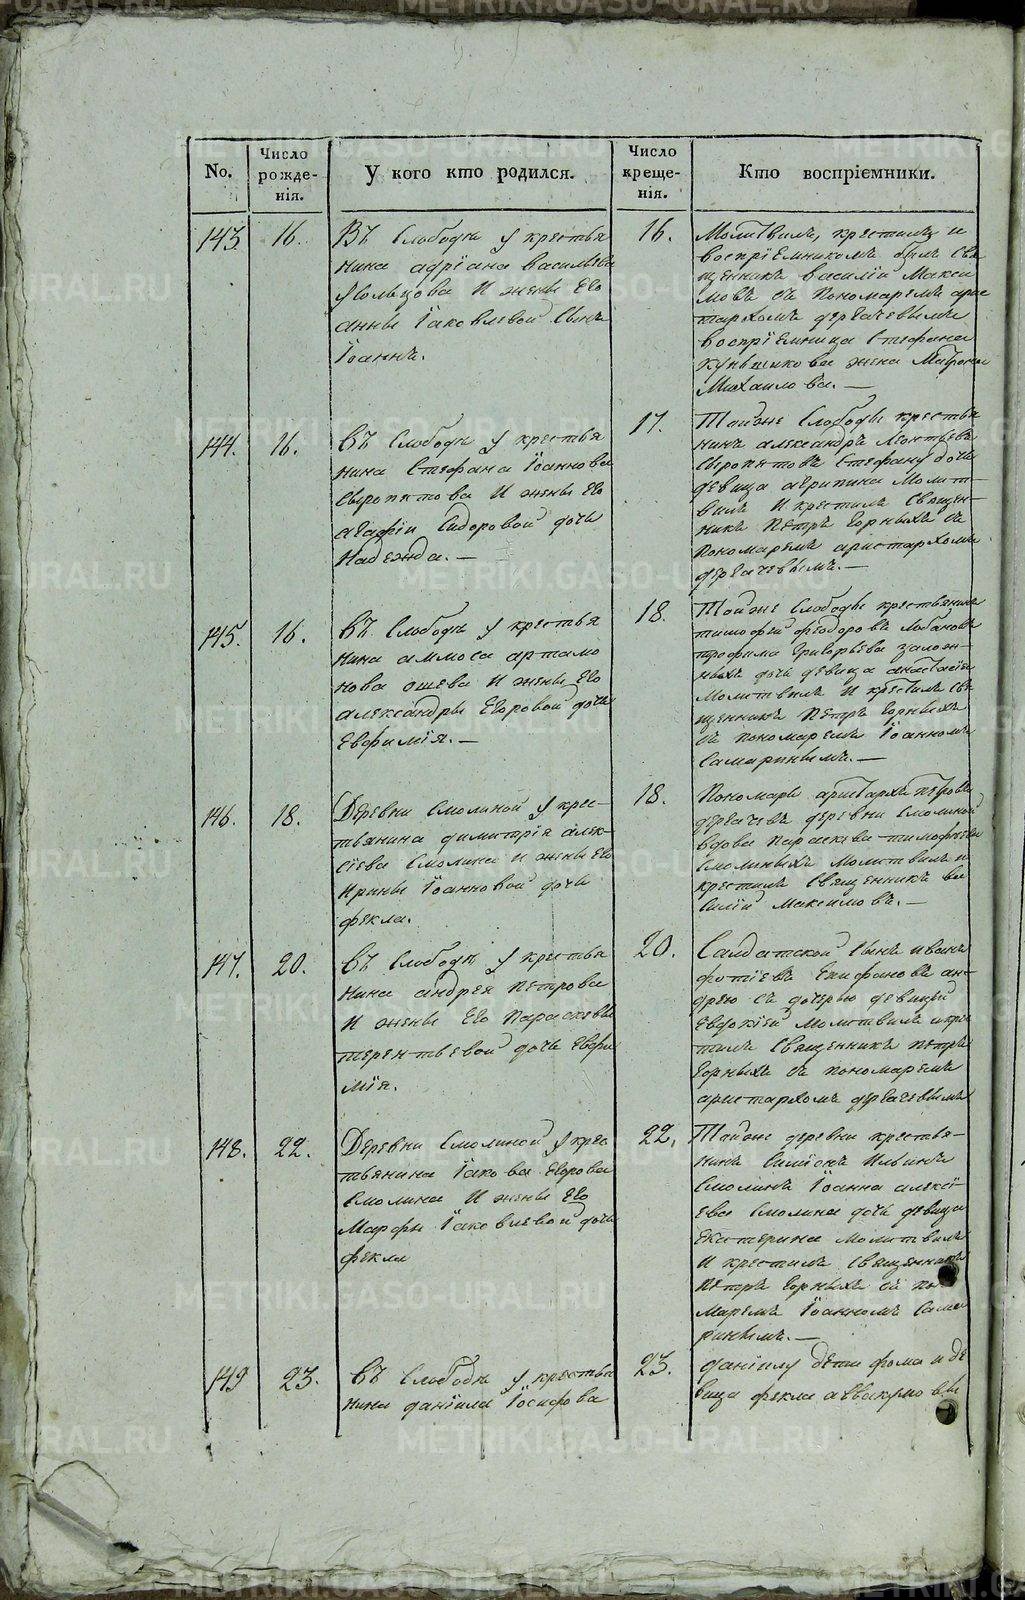 No.
Число рожде-нія.
У кого кто родился.
Число креще-нія.
Кто воспріемники.
143
16.
Въ Слободѣ у крестья
нина Адріана Васильева
и жены его
Анны Іаковлевой сынъ
Іоаннъ.
16.
Молитвилъ, крестилъ и
воспріемникомъ былъ свя
щенникъ Василій Макси
мовъ съ пономаремъ Арис
тархомъ Дергачевымъ
воспріемница Стефана
жена Матрона
Михаилова.—
144.
16.
Въ Слободѣ у крестья
нина Стефана Іоаннова
Сыропятова и жены его
Агафіи Сидоровой дочь
Надежда.—
17.
Тойже Слободы крестья
нинъ Александръ Леонтьевъ
Сыропятовъ Стефану дочь
девица Агрипина молит-
вилъ и крестилъ священ-
никъ Петръ Горныхъ съ
пономаремъ Аристархомъ
Дергачевымъ.—
145.
16.
Въ Слободѣ у крестья
нина Аммоса Артамо
нова и жены его
Александры Егоровой дочь
Евфимія.—
18.
Тойже Слободы крестьянинъ
Тимофей Феодоровъ Лобановъ
Трофима Григорьева
дочь девица Анастасія
молитвилъ и крестилъ свя
щенникъ Петръ Горныхъ
съ пономаремъ Іоанномъ
Самаринымъ.—
146.
18.
Деревни Смолиной у крес-
тьянина Димитрія Алек-
сіева Смолина и жены его
Ирины Іоанновой дочь
Фекла.
18.
Пономарь Аристархъ Петровъ
Дергачевъ деревни Смолиной
вдова Параскева Тимофеева
Смолиныхъ молитвилъ и
крестилъ священникъ Ва
силій Максимовъ.—
147.
20.
Въ Слободѣ у крестья
нина Андрея Петрова
и жены его Параскевы
Терентьевой дочь Евфи
мія.
20.
Салдатской сынъ Иванъ
Фотіевъ Епифановъ Ан-
дрею съ дочерью девицей
Евдокіей молитвилъ и кре
стилъ священникъ Петръ
Горныхъ съ пономаремъ
Аристархомъ Дергачевымъ
148.
22.
Деревни Смолиной у крес
тьянина Іакова Егорова
Смолина и жены его
Марфы Іаковлевой дочь
Фекла
22.
Тойже деревни крестья-
нинъ Симіонъ Ильинъ
Смолинъ Іоанна Алексі-
ева Смолина дочь девица
Екатерина молитвилъ
и крестилъ священникъ
Петръ Горныхъ съ поно
маремъ Іоанномъ Сама
ринымъ.—
149
23.
Въ Слободѣ у крестья
нина Даніила Іосифова
23.
Даніилу дети Фома и де
вица Фекла Аввакумовы
METRIKI.GASO-URAL.RU